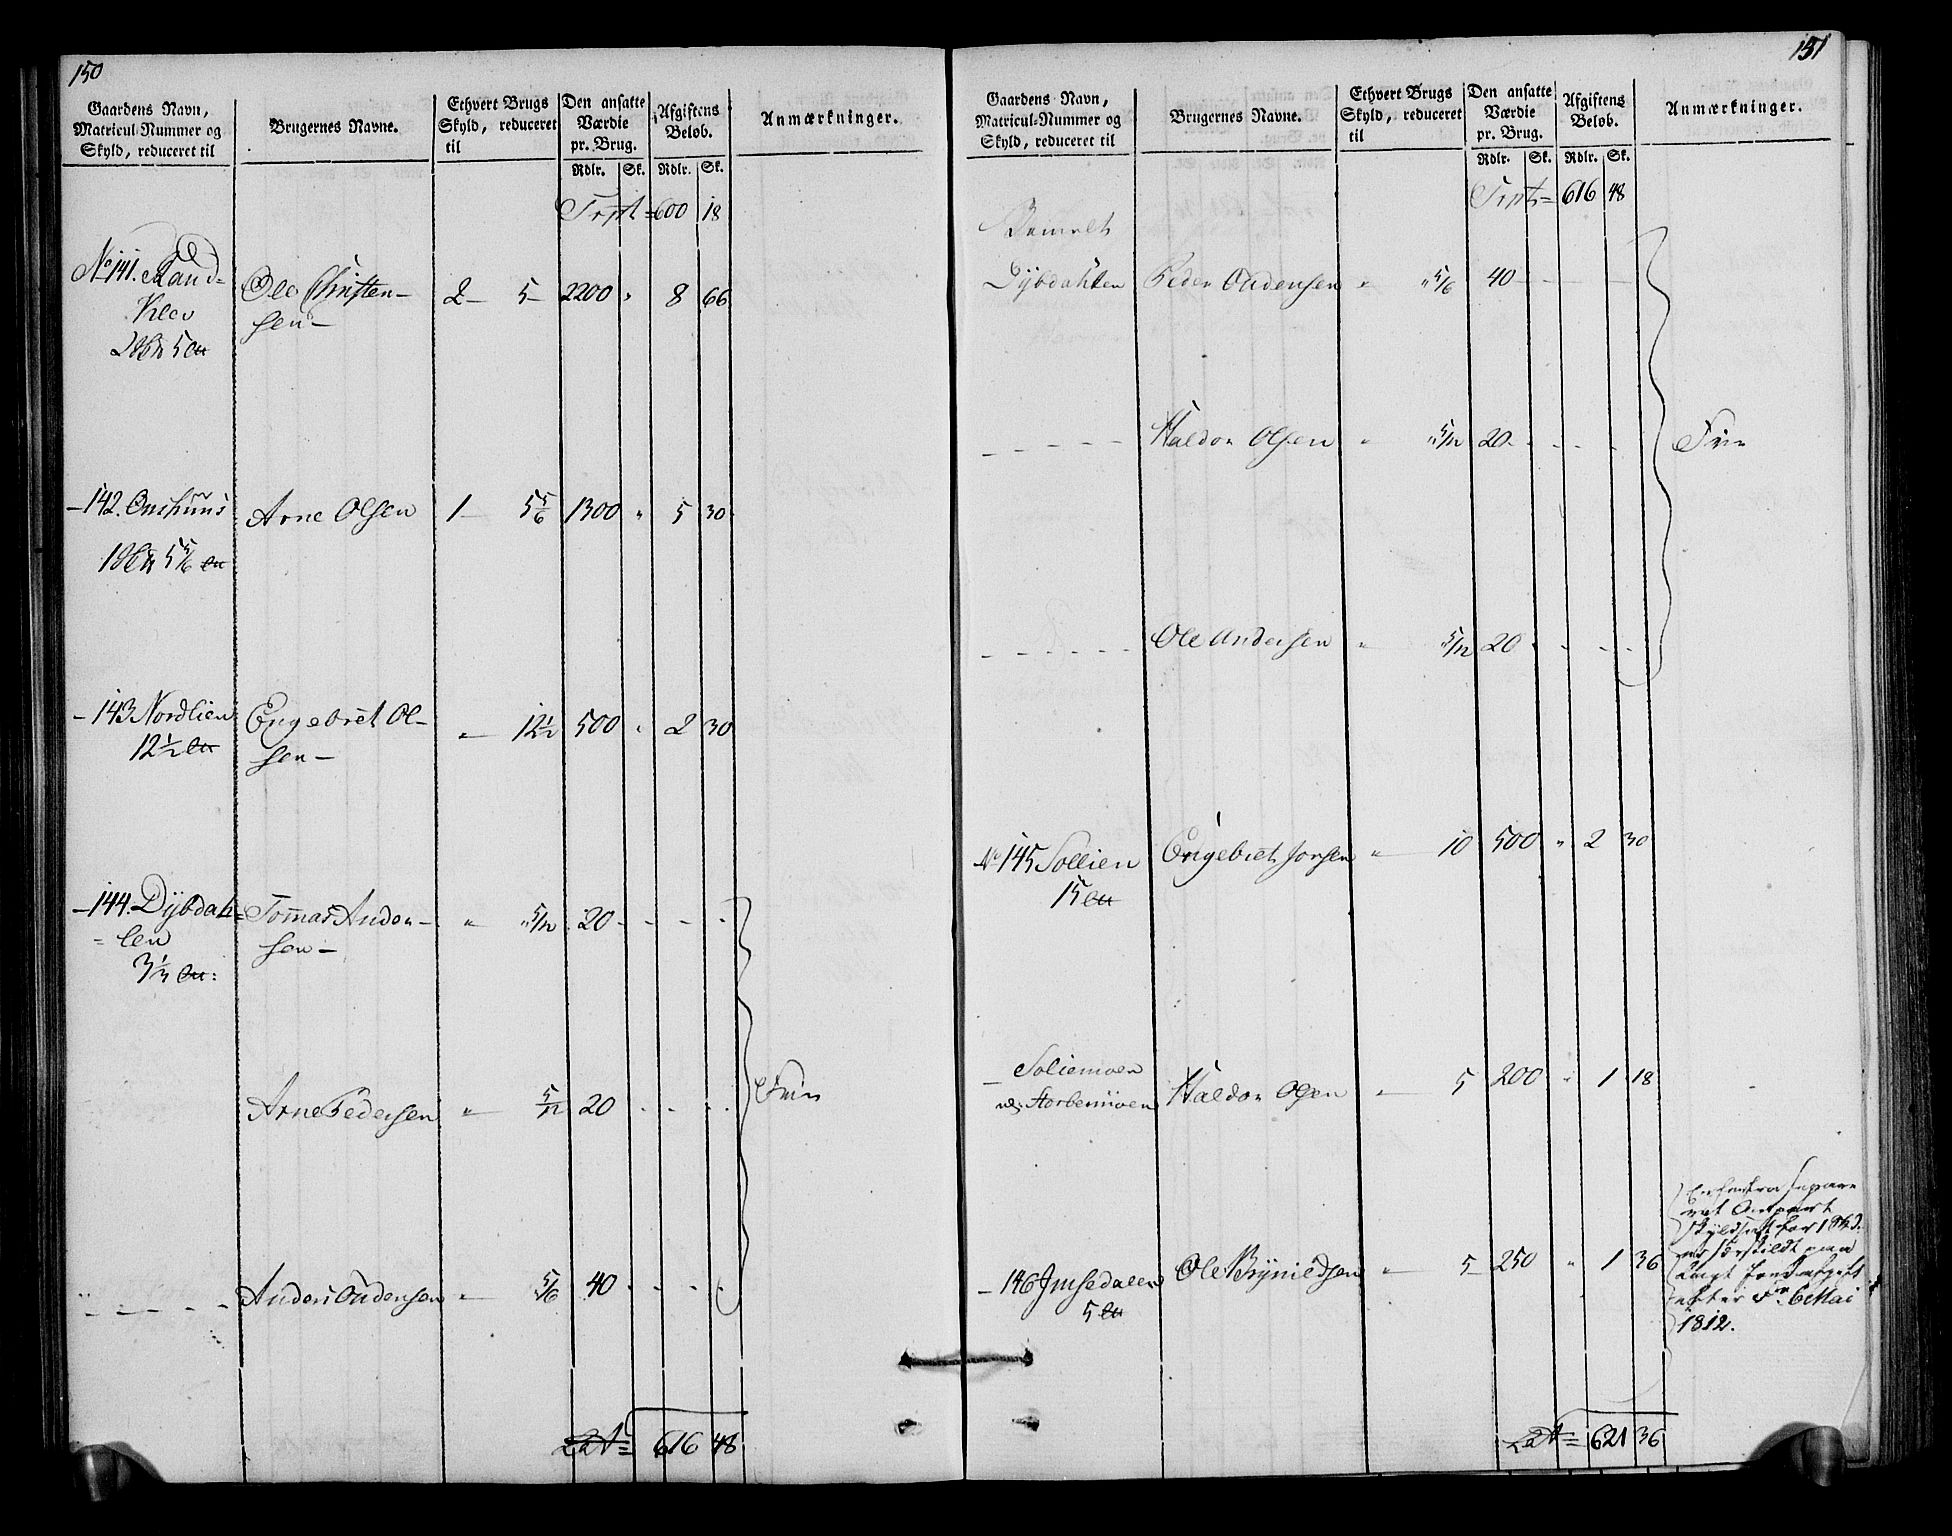 150
Gaardens Navn,
Matricul-Nummer og
Skyld, reduceret til
Brugernes Navne.
Ethvert Brugs
Skyld, reduceret
til
Den ansatte
Værdie
pr. Brug.
Afgiftens
Beløb.
Anmærkninger.
Rdlr. Sk. Rdlr. Sk.
600 18
No 141.
Ole Christen- 2 5 2200 8 66
sen
142. Arne Olsen 1 5 5/6 1300 " 5 30
5 5/6
143 Nordlien Engebret Ol- " 12½ 500 " 2 30
12½ sen
144. Dybdah- Tommas Ander- " 5/12 20
len sen
3⅓
Arne Pedersen " 5/12 20 Frie
Anders Oudensen " 5/6 40
Lat= 616 48
151
Gaardens Navn,
Matricul-Nummer og
Skyld, reduceret til
Brugernes Navne.
Ethvert Brugs
Skyld, reduceret
til
Den ansatte
Værdie
pr. Brug.
Afgiftens
Beløb.
Anmærkninger.
Rdlr. Sk. Rdlr. Sk.
616 48
Dybdahlen Peder Oudensen " 5/6 40
Haldor Olsen " 5/12 20 Frie
Ole Andersen " 5/12 20
No 145 Sollien Engebret Jonsen " 10 500 " 2 30
15
Soliemoen
Haldor Olsen " 5 200 " 1 18
146 Imsedalen Ole Brynildsen " 5 250 " 1 36
5
6 Mai
1812.
Lat= 621 36